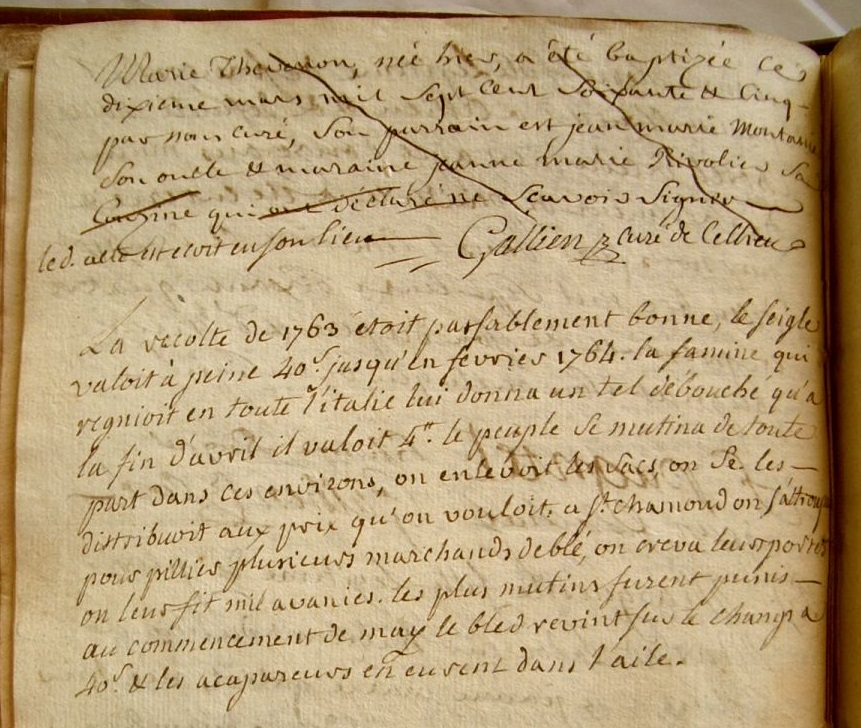 Marie Thevenon, née hier, a été baptizée ce
dixieme mars mil sept cent soixante & cinq
par nous curé, son parrain est jean marie Montanié
son oncle & maraine jeanne marie Rivolier sa
Cousine qui ont déclaré ne scavoir signer
led. acte est ecrit en son lieu Gallien curé de Cellieu
La recolte de 1763 etoit passablement bonne, le seigle
valoit à peine 40s jusqu'en fevrier 1764. la famine qui
regnioit en toute l'italie lui donna un tel débouché qu'a
la fin d'avril il valoit 4tt. le peuple se mutina de toute
part dans ces environs, on enlevoit les sacs, on se les
distribuoit aux prix qu'on vouloit. a st chamond on s'attroupa
pour pillier plusieurs marchands de blé, on creva leurs portes
on leur fit mil avanies. les plus mutins furent punis
au commencement de may le bled revint sur le champ a
40s & les acapareurs en eurent dans l'aile.